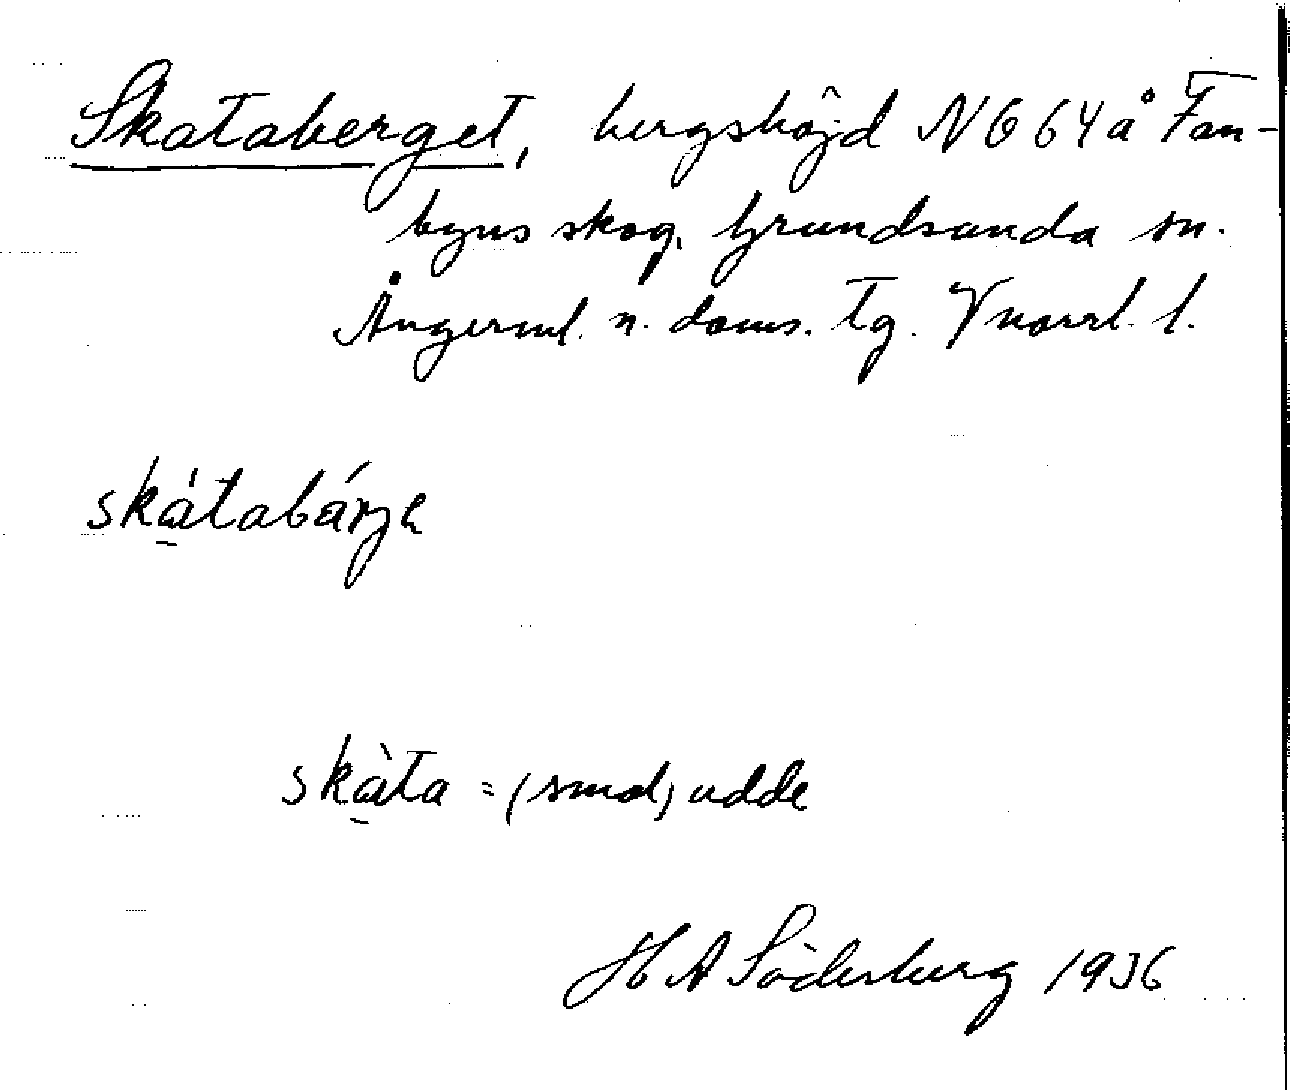 Skataberget, bergshöjd N664 å Fan-
byns skog, Grundsunda sn.
Ångerml. n. doms. tg. Vnorrl. l.
skàtabárjə
skàta = (smal) udde
H A Söderberg 1936